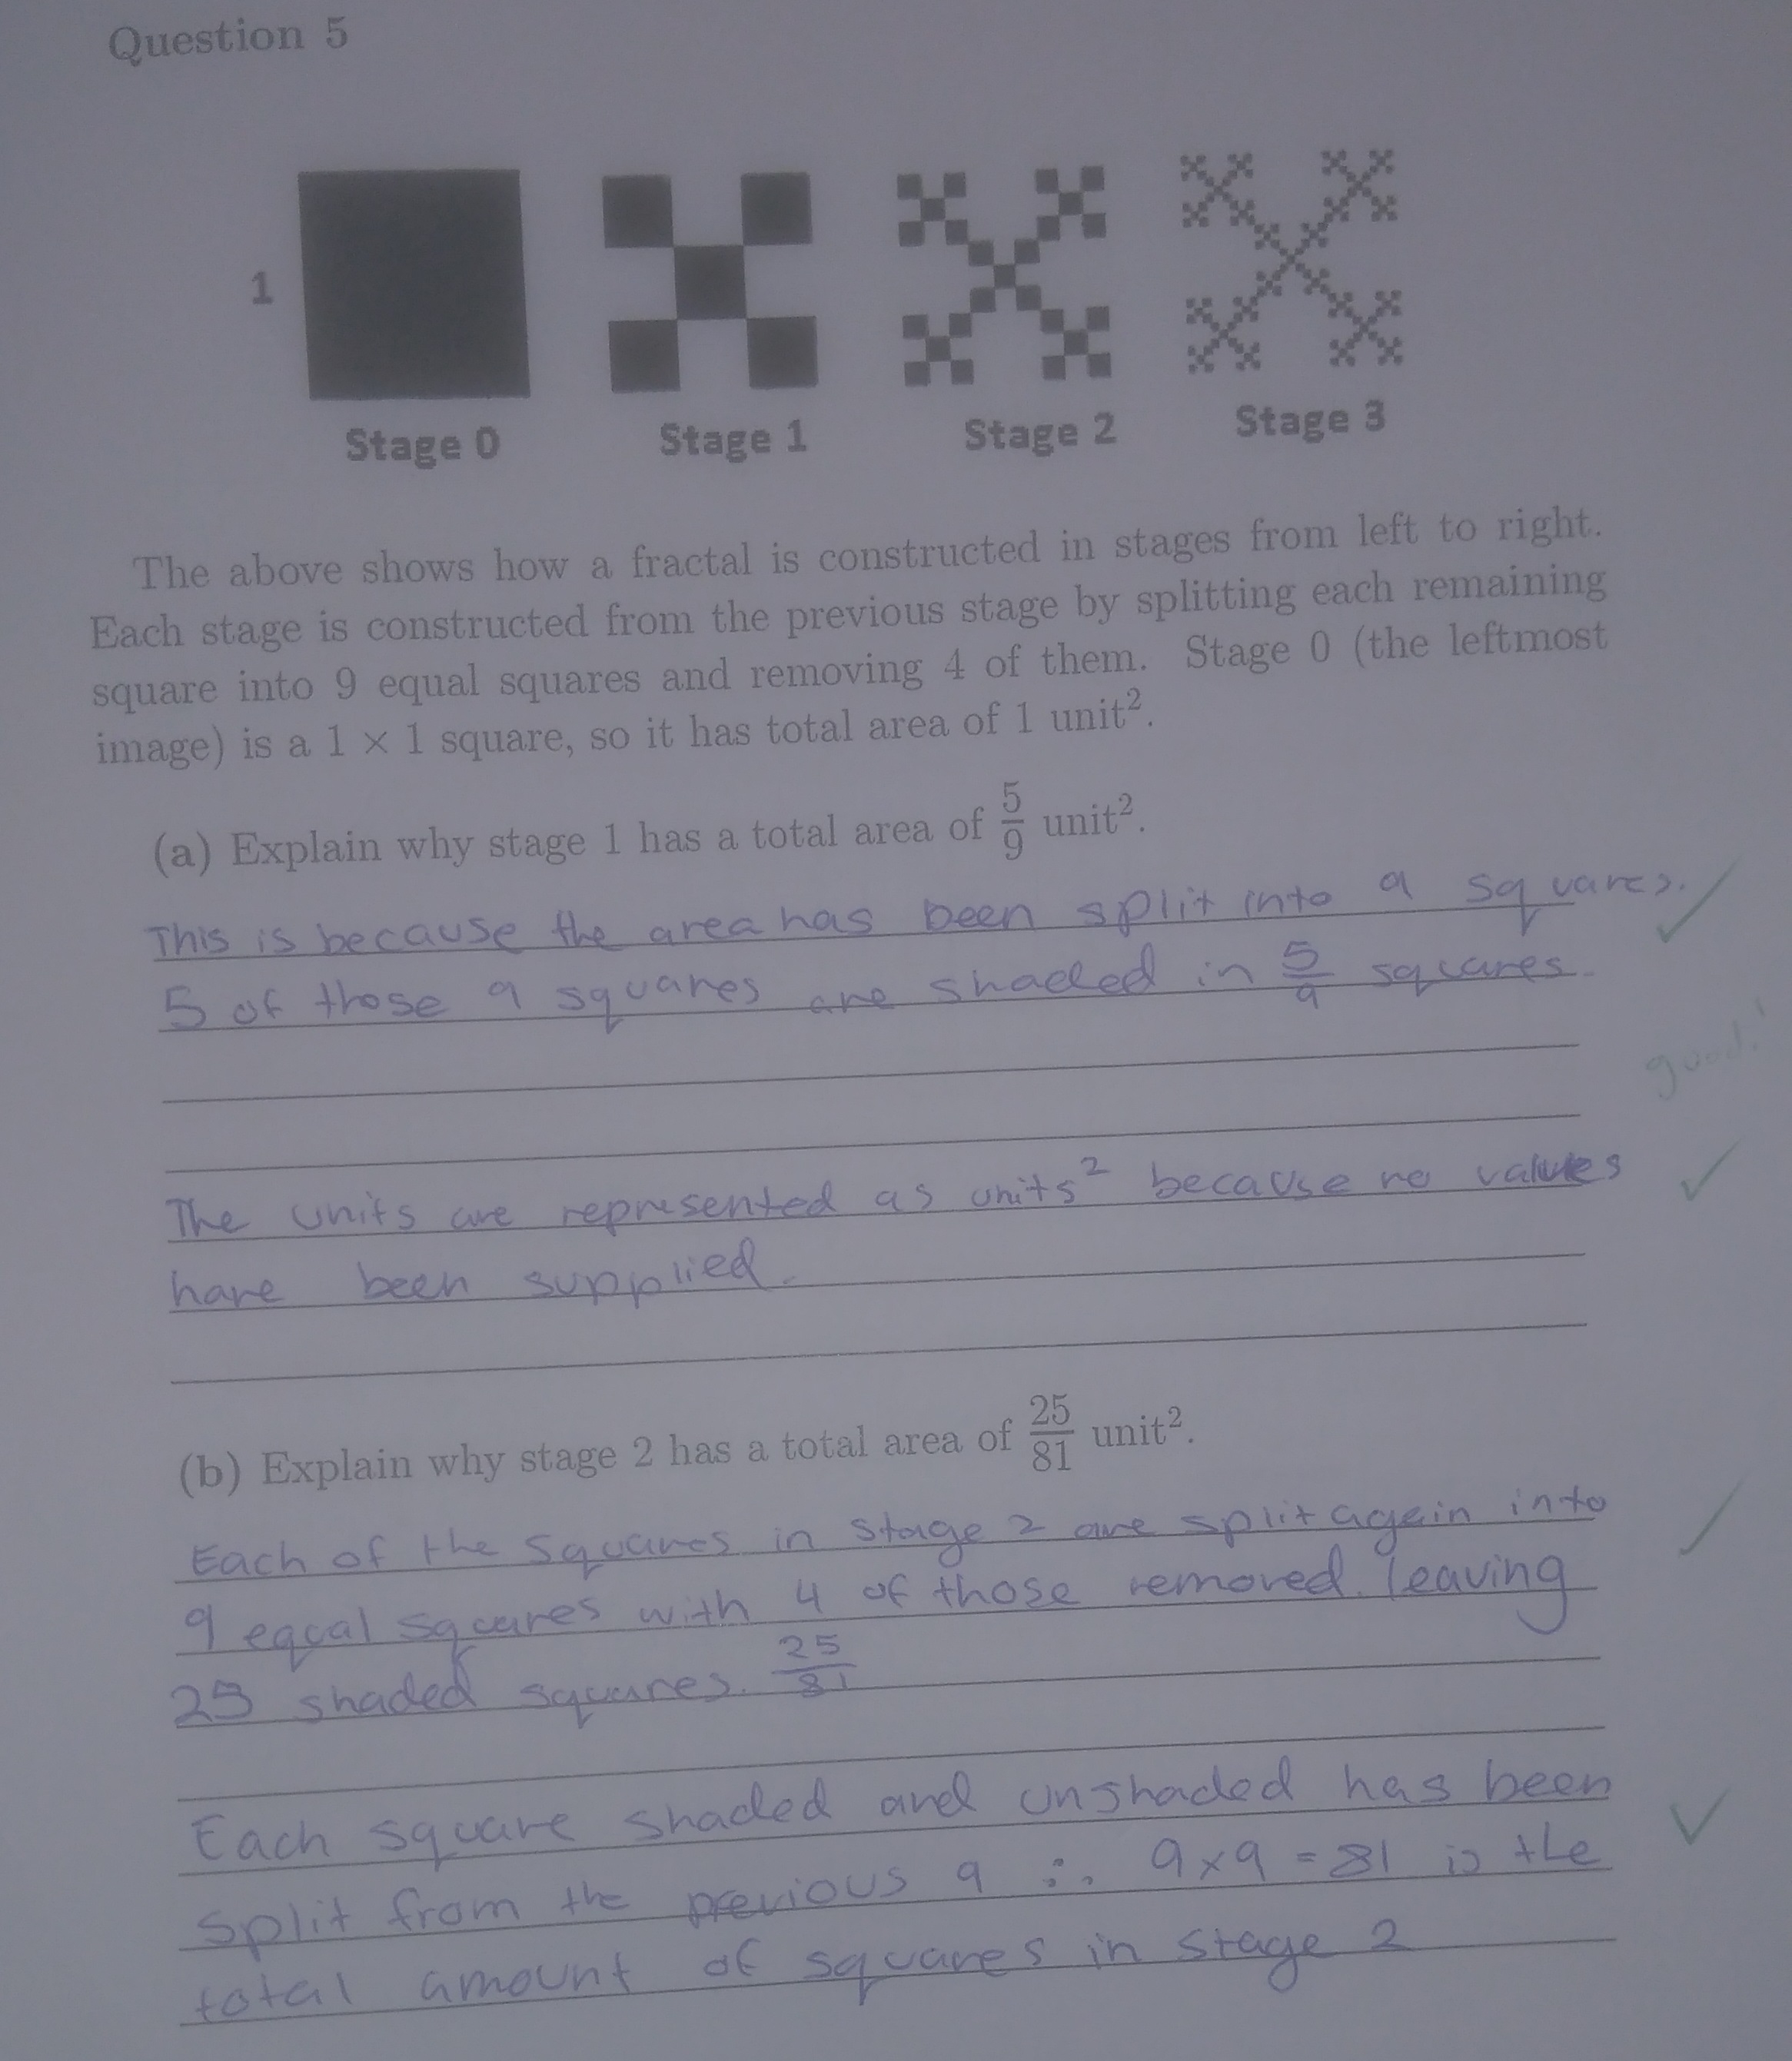 Question 5
1
Stage 0 Stage 1 Stage 2 Stage 3
The above shows how a fractal is constructed in stages from left to right.
Each stage is constructed from the previous stage by splitting each remaining
square into 9 equal squares and removing 4 of them. Stage 0 (the leftmost
image) is a 1 × 1 square, so it has total area of 1 unit².
(a) Explain why stage 1 has a total area of 5/9 unit².
This is because the area has been split into 9 squares.
5 of those 9 squares are shaded in 5/9 squares.
good!
The units are represented as units² because no values
have been supplied.
(b) Explain why stage 2 has a total area of 25/81 unit².
Each of the squares in stage 2 are split again into
9 equal squares with 4 of those removed. leaving
25 shaded squares. 25/81
Each square shaded and unshaded has been
split from the previous 9 ∴ 9×9 = 81 is the
total amount of squares in stage 2